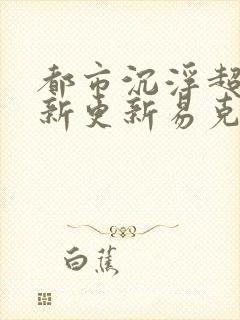 都市沉浮超
新更新易克
白蕉